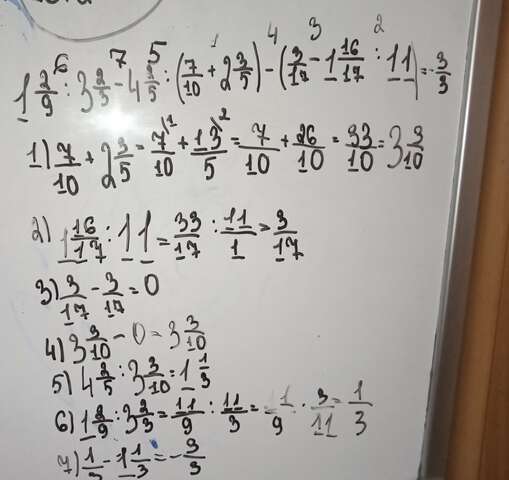 6 7 5 1 4 3 2
1 2/9 : 3 2/3 - 4 2/5 : (7/10 + 2 3/5) - (3/17 - 1 16/17 : 11) = -3/3
1) 7/10 + 2 3/5 = 7\1/10 + 13\2/5 = 7/10 + 26/10 = 33/10 = 3 3/10
2) 1 16/17 : 11 = 33/17 : 11/1 = 3/17
3) 3/17 - 3/17 = 0
4) 3 3/10 - 0 = 3 3/10
5) 4 2/5 : 3 3/10 = 1 1/3
6) 1 2/9 : 3 2/3 = 11/9 : 11/3 = 11/9 : 3/11 = 1/3
7) 1/3 - 1 1/3 = -3/3